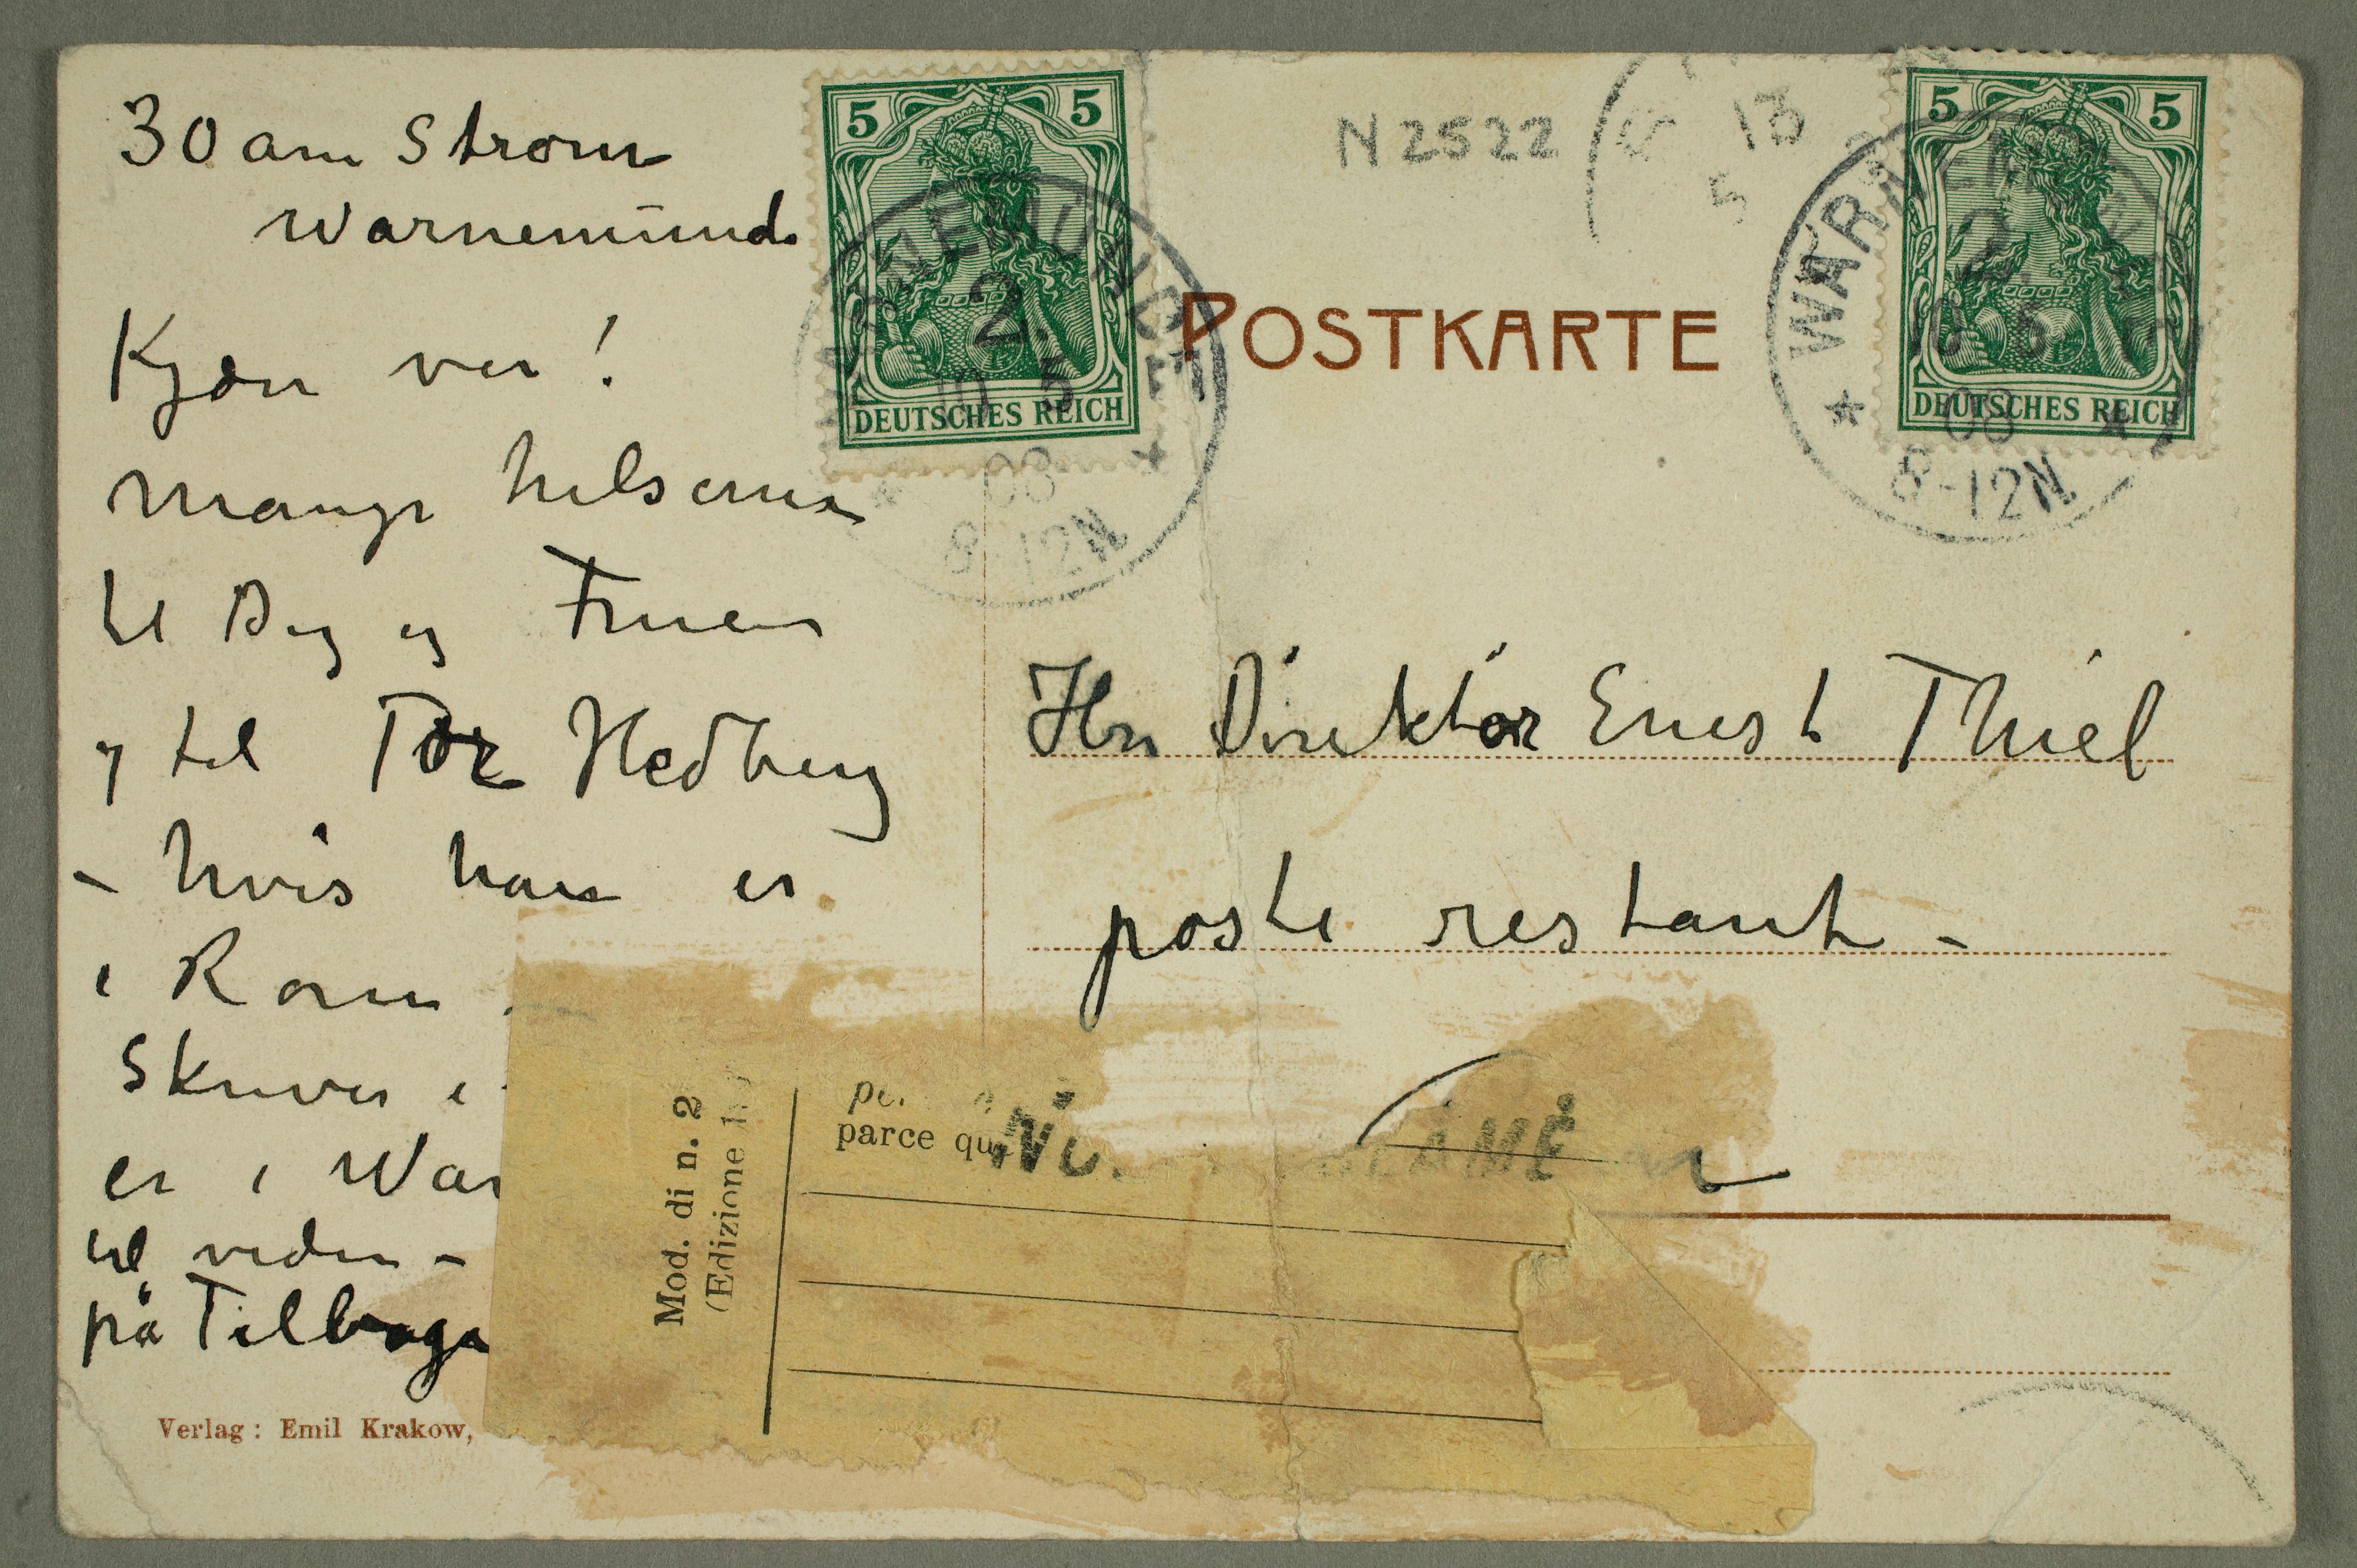 30 am Strom
Warnemünde
Kjære ven!
Mange hilsener
til Dig og Fruen
og til Tor Hedberg
– hvis han er
i Rom
Skriver i
er i War
til viden –
på Tilbage
Verlag: Emil Krakow,
5 5
DEUTSCHES REICH
WARNEMÜNDE
2.
10 5
08
8-12N
N 2522
13
5
POSTKARTE
5 5
DEUTSCHES REICH
WARNEMÜNDE
2.
10 5
08
8-12N
Hr Direktør Ernest Thiel
poste restant –
Mod. di n. 2
(Edizione
parce qu